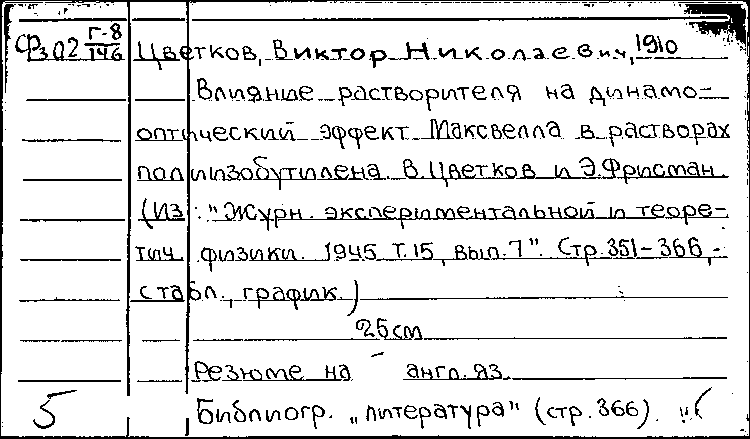 Фз02 Г-8/146 Цветков, Виктор Николаевич, 1910
Влияние растворителя на динамо-
оптический эффект Максвелла в растворах
полиизобутилена. В. Цветков и Э. Фрисман.
(Из: "Журн. экспериментальной и теоре-
тич. физики. 1945 Т. 15, вып. 7". Стр. 351-366,-
с табл., график.)
25 см
Резюме на англ. яз.
5 Библиогр. „литература" (стр. 366).